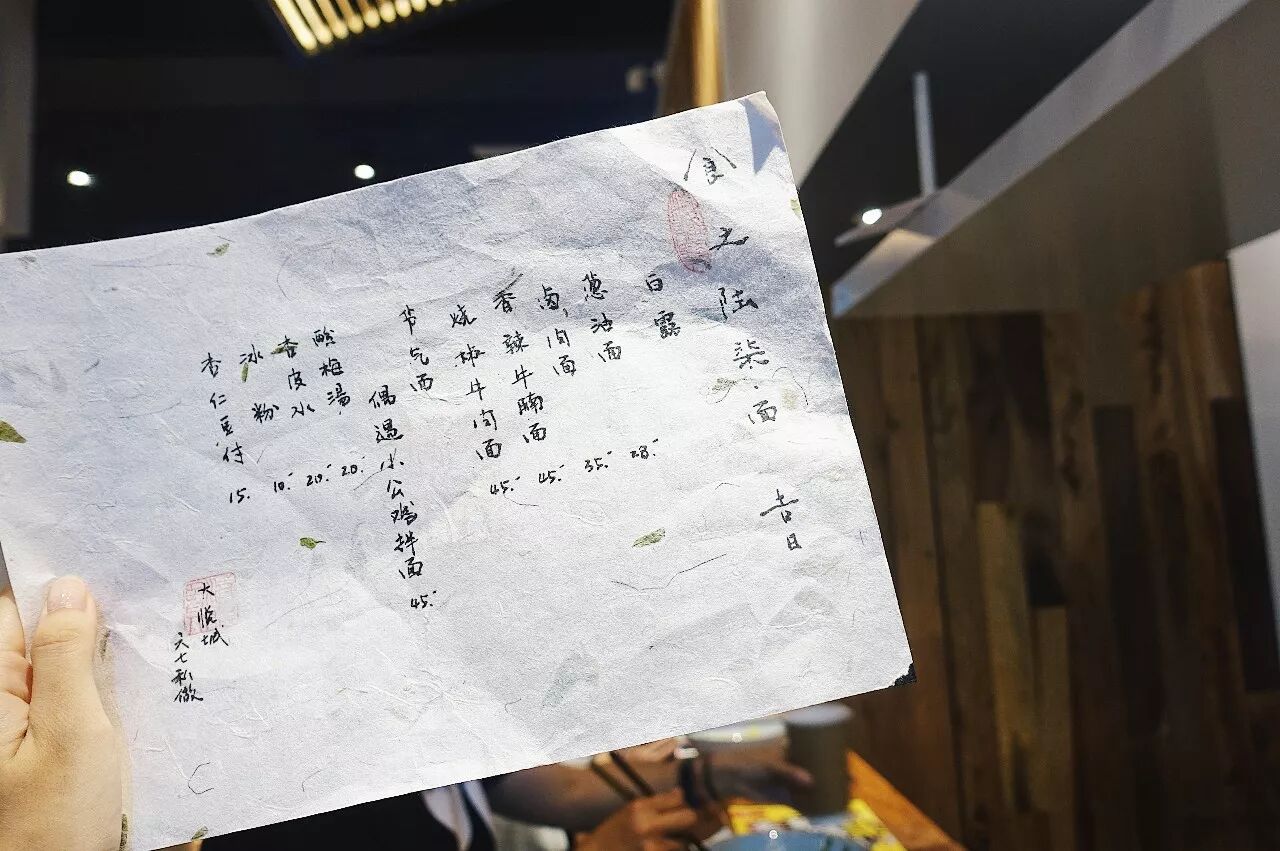 食之陆柒·面 吉日
白露
葱油面 28.-
卤肉面 35.-
香辣牛腩面 45.-
烧椒牛肉面 45.-
节气面
偶遇小公鸡拌面 45.-
酸梅湯 20.-
杏皮水 20.-
冰粉 10.-
杏仁豆付 15.
大悦城
六七私做